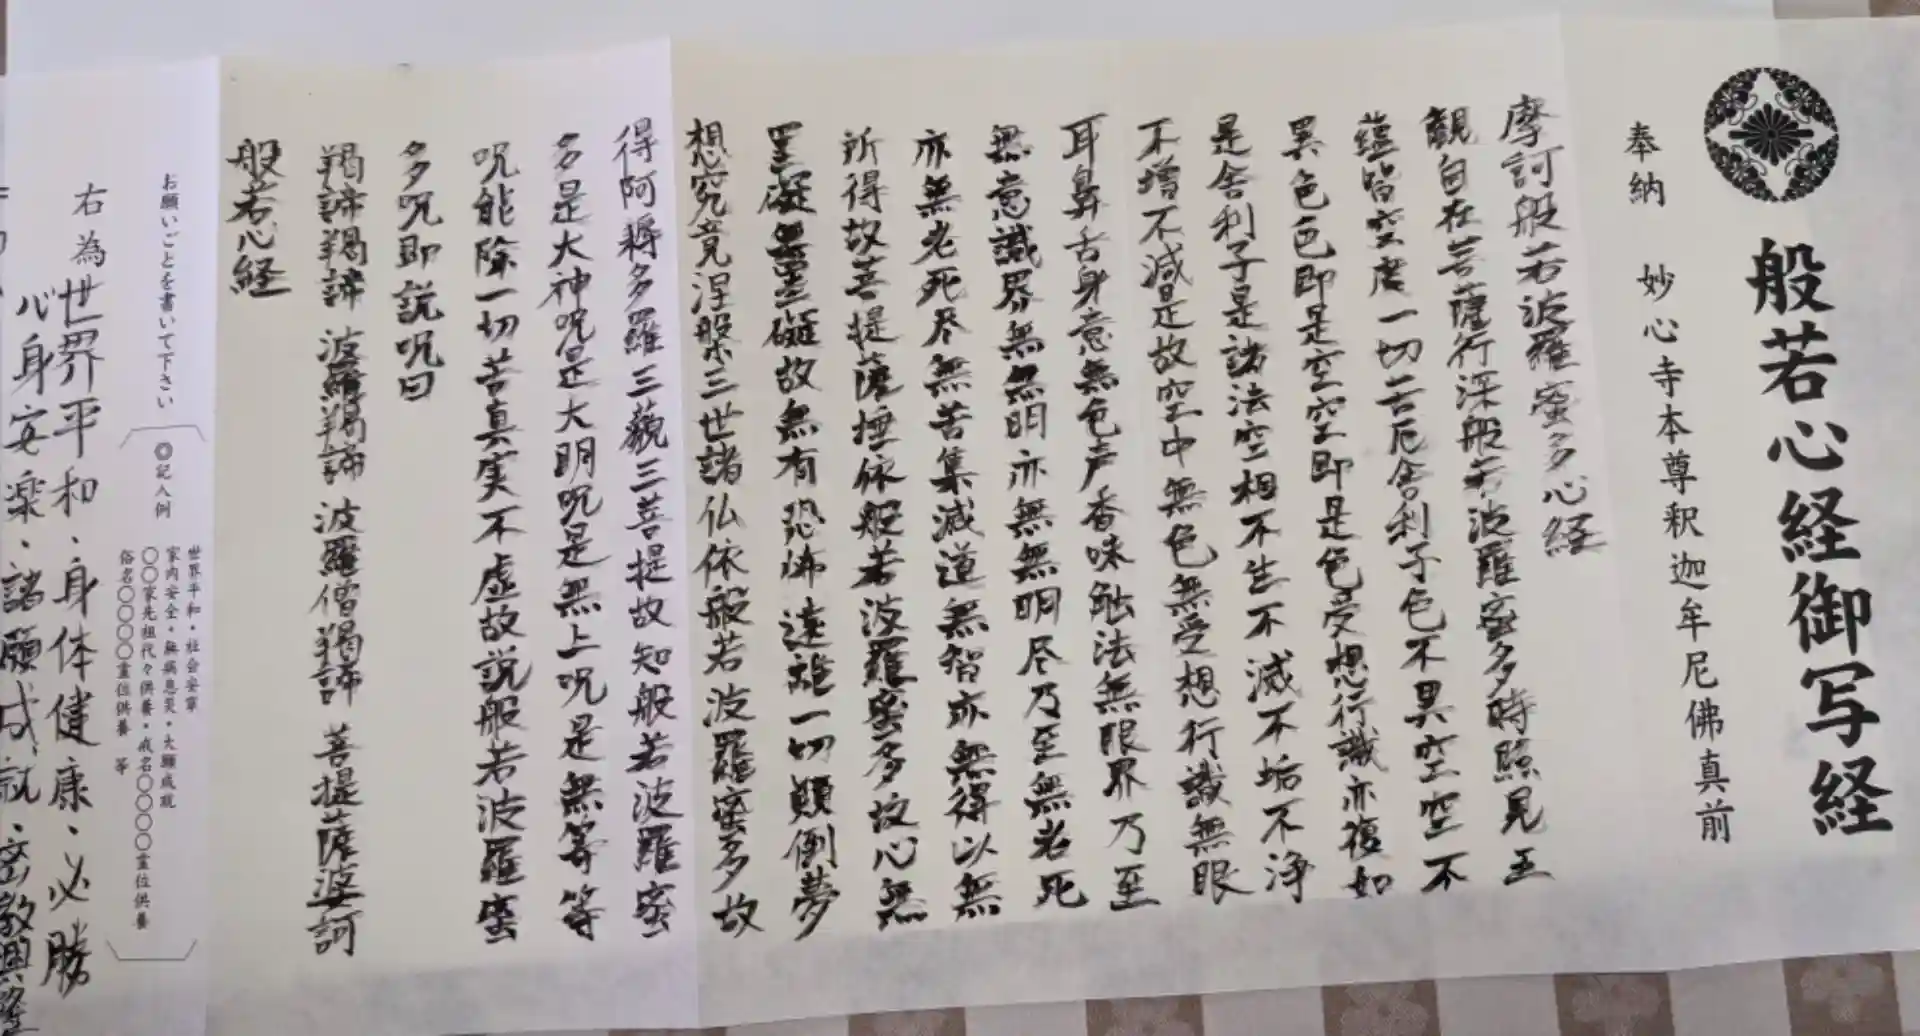 般若心経御写経
奉納　妙心寺本尊釈迦牟尼佛真前
摩訶般若波羅蜜多心経
観自在菩薩行深般若波羅蜜多時照見五
蘊皆空度一切苦厄舎利子色不異空空不
異色色即是空空即是色受想行識亦復如
是舎利子是諸法空相不生不滅不垢不浄
不増不減是故空中無色無受想行識無眼
耳鼻舌身意無色声香味触法無眼界乃至
無意識界無無明亦無無明尽乃至無老死
亦無老死尽無苦集滅道無智亦無得以無
所得故菩提薩埵依般若波羅蜜多故心無
罣礙無罣礙故無有恐怖遠離一切顛倒夢
想究竟涅槃三世諸仏依般若波羅蜜多故
得阿耨多羅三藐三菩提故知般若波羅蜜
多是大神呪是大明呪是無上呪是無等等
呪能除一切苦真実不虚故説般若波羅蜜
多呪即説呪曰
羯諦羯諦　波羅羯諦　波羅僧羯諦　菩提薩婆訶
般若心経
お願いごとを書いて下さい
◎記入例
世界平和・社会安寧
家内安全・無病息災・大願成就
〇〇家先祖代々供養・戒名〇〇〇〇霊位供養
俗名〇〇〇〇霊位供養　等
右為世界平和、身体健康、必勝
心身安楽、諸願成就、密教興隆